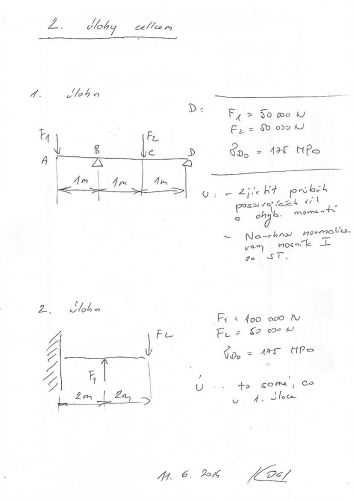 2. úlohy celkem
1. úloha
D:
F1 = 50 000 N
F2 = 50 000 N
σDo = 175 MPa
F1
F2
A B C D
1m 1m 1m
Ú: - Zjistit průběh
posouvajících sil
a ohyb. momentů
- Navrhnout normalizo
vaný nosník I
ze ST.
2. úloha
F1 = 100 000 N
F2 = 50 000 N
σDo = 175 MPa
F2
F1
2m 2m
Ú... to samé, co
v 1. úloze
11. 6.